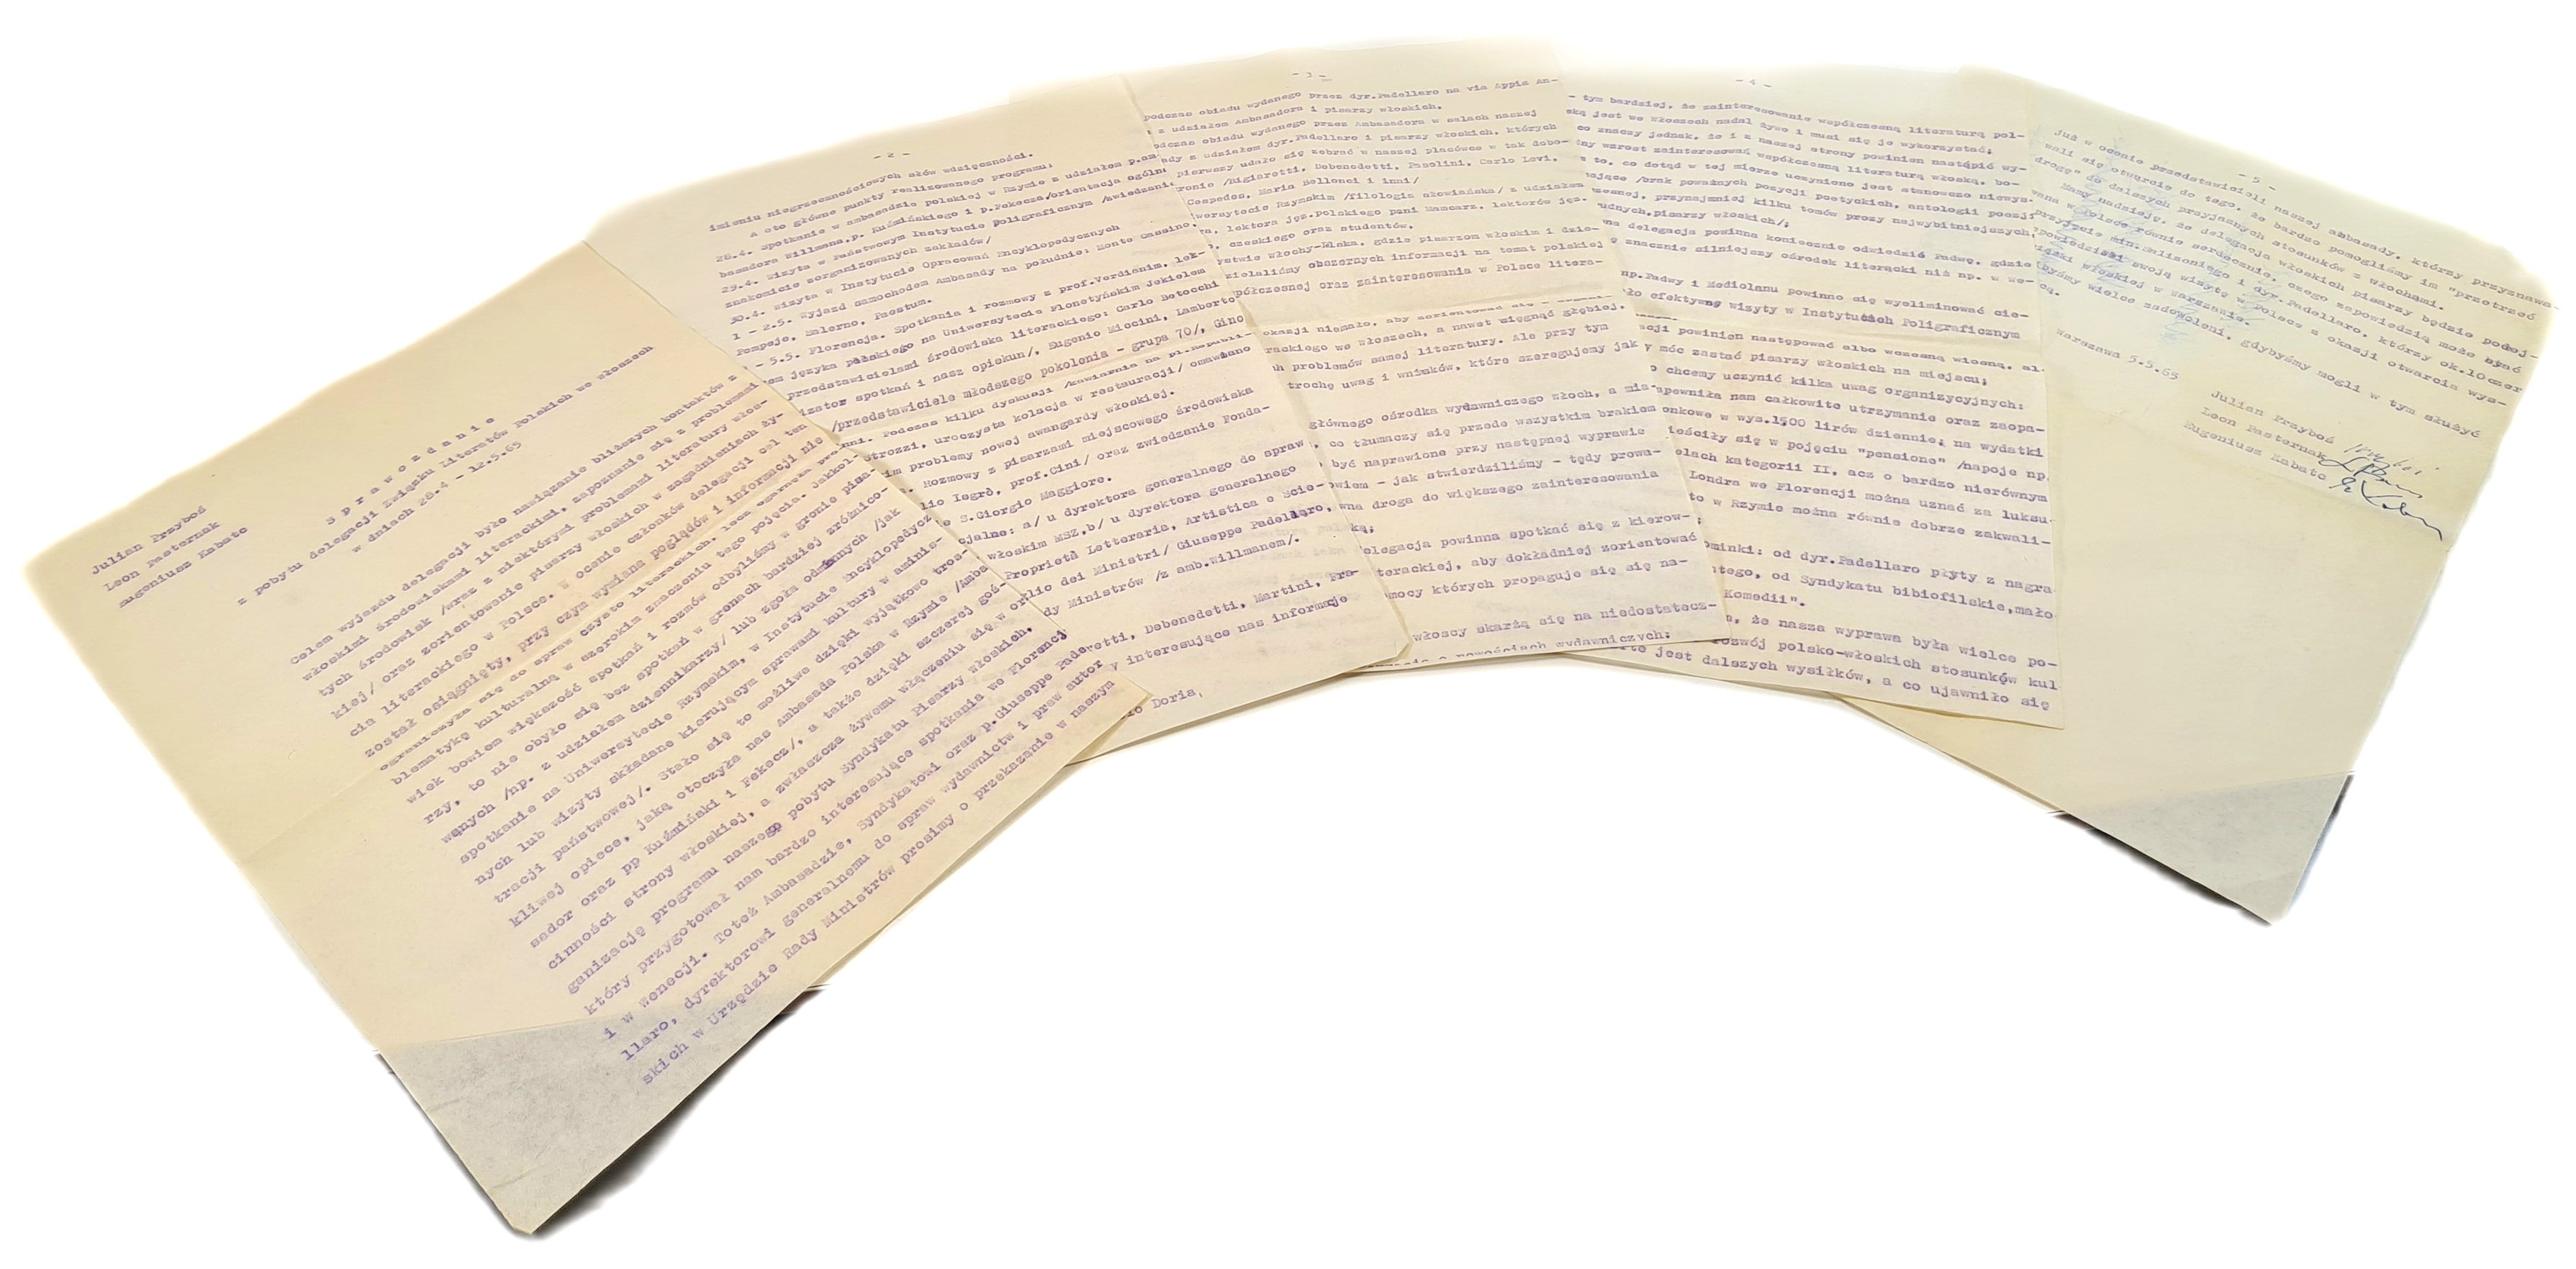 Julian Przyboś
Leon Pasternak
Eugeniusz Kabatc
S p r a w o z d a n i e
z pobytu delegacji Związku Literatów Polskich we Włoszech
w dniach 28.4 - 12.5.65
Celem wyjazdu delegacji było nawiązanie bliższych kontaktów z
włoskimi środowiskami literackimi, zapoznanie się z problemami
tych środowisk /wraz z niektórymi problemami literatury włos-
kiej/ oraz zorientowanie pisarzy włoskich w zagadnieniach ży-
cia literackiego w Polsce. W ocenie członków delegacji cel ten
został osiągnięty, przy czym wymiana poglądów i informacji nie
ograniczyła się do spraw czysto literackich, lecz ogarnęła pro-
blematykę kulturalną w szerokim znaczeniu tego pojęcia. Jakkol-
wiek bowiem większość spotkań i rozmów odbyliśmy w gronie pisa-
rzy, to nie obyło się bez spotkań w gronach bardziej zróżnico-
wanych /np. z udziałem dziennikarzy/ lub zgoła odmiennych /jak
spotkanie na Uniwersytecie Rzymskim, w Instytucie Encyklopedycz
nych lub wizyty składane kierującym sprawami kultury w adminis-
tracji państwowej/. Stało się to możliwe dzięki wyjątkowo tros-
kliwej opiece, jaką otoczyła nas Ambasada Polska w Rzymie /Amba
sador oraz pp Kuźmiński i Pekecz/, a także dzięki szczerej goś-
cinności strony włoskiej, a zwłaszcza żywemu włączeniu się w or
ganizację programu naszego pobytu Syndykatu Pisarzy Włoskich,
który przygotował nam bardzo interesujące spotkania we Florencj
i w Wenecji. Toteż Ambasadzie, Syndykatowi oraz p.Giuseppe Pade
llaro, dyrektorowi generalnemu do spraw wydawnictw i praw autor
skich w Urzędzie Rady Ministrów prosimy o przekazanie w naszym
- 2 -
imieniu niegrzecznościowych słów wdzięczności.
A oto główne punkty realizowanego programu:
28.4. Spotkanie w ambasadzie polskiej w Rzymie z udziałem p.am
basadora Willmana, p. Kuźmińskiego i p.Pekecza/orientacja ogóln
29.4. Wizyta w Państwowym Instytucie Poligraficznym /zwiedzani
znakomicie zorganizowanych zakładów/
30.4. Wizyta w Instytucie Opracowań Encyklopedycznych
1 - 2.5. Wyjazd samochodem Ambasady na południe: Monte Cassino,
Pompeje, Salerno, Paestum.
- 5.5. Florencja. Spotkania i rozmowy z prof.Verdianim, lek-
em języka polskiego na Uniwersytecie Florentyńskim Jekielem
przedstawicielami środowiska literackiego: Carlo Betocchi
izator spotkań i nasz opiekun/, Eugenio Miccini, Lamberto
/przedstawiciele młodszego pokolenia - grupa 70/, Gino
nni. Podczas kilku dyskusji /kawiarnia na pl.Republi-
Strozzi, uroczysta kolacja w restauracji/ omawiano
im problemy nowej awangardy włoskiej.
. Rozmowy z pisarzami miejscowego środowiska
lio Zegrò, prof.Cini/ oraz zwiedzanie Fonda-
e S.Giorgio Maggiore.
cjalne: a/ u dyrektora generalnego do spraw
włoskim MSZ,b/ u dyrektora generalnego
Proprietà Letteraria, Artistica e Scie-
lio dei Ministri/ Giuseppe Padellaro,
dy Ministrów /z amb.Willmanem/.
vetti, Debenedetti, Martini, Fra-
y interesujące nas informacje
o Doria,
- 3 -
podczas obiadu wydanego przez dyr.Padellaro na via Appia An-
a z udziałem Ambasadora i pisarzy włoskich.
odczas obiadu wydanego przez Ambasadora w salach naszej
ady z udziałem dyr.Padellaro i pisarzy włoskich, których
pierwszy udało się zebrać w naszej placówce w tak dobo-
ronie /Bigiaretti, Debenedetti, Pasolini, Carlo Levi,
Cespedes, Maria Bellonci i inni/
wersytecie Rzymskim /filologia słowiańska/ z udziałem
ra, lektora jęz.polskiego pani Mancarz, lektorów jęz.
o, czeskiego oraz studentów.
ystwie Włochy-Polska, gdzie pisarzom włoskim i dzie-
zielaliśmy obszernych informacji na temat polskiej
półczesnej oraz zainteresowania w Polsce litera-
okazji niemało, aby zorientować się - organi-
rackiego we Włoszech, a nawet sięgnąć głębiej,
h problemów samej literatury. Ale przy tym
trochę uwag i wniosków, które szeregujemy jak
głównego ośrodka wydawniczego Włoch, a mia-
, co tłumaczy się przede wszystkim brakiem
być naprawione przy następnej wyprawie
wiem - jak stwierdziliśmy - tędy prowa-
wna droga do większego zainteresowania
ką;
elegacja powinna spotkać się z kierow-
terackiej, aby dokładniej zorientować
mocy których propaguje się się na-
włoscy skarżą się na niedostatecz-
o nowościach wydawniczych;
- 4 -
- tym bardziej, że zainteresowanie współczesną literaturą pol-
ską jest we Włoszech nadal żywe i musi się je wykorzystać;
co znaczy jednak, że i z naszej strony powinien nastąpić wy-
ny wzrost zainteresowań współczesną literaturą włoską, bo-
to, co dotąd w tej mierze uczyniono jest stanowczo niewys-
ające /brak poważnych pozycji poetyckich, antologii poezji
zesnej, przynajmniej kilku tomów prozy najwybitniejszych
udnych,pisarzy włoskich/;
na delegacja powinna koniecznie odwiedzić Padwę, gdzie
znacznie silniejszy ośrodek literacki niż np. w We-
np.Padwy i Mediolanu powinno się wyeliminować cie-
ło efektywne wizyty w Instytutach Poligraficznym
cji powinien następować albo wczesną wiosną, al-
móc zastać pisarzy włoskich na miejscu;
o chcemy uczynić kilka uwag organizacyjnych:
apewniła nam całkowite utrzymanie oraz zaopa-
onkowe w wys.1500 lirów dziennie; na wydatki
ieściły się w pojęciu "pensione" /napoje np.
elach kategorii II, acz o bardzo nierównym
Londra we Florencji można uznać za luksu-
to w Rzymie można równie dobrze zakwali-
ominki: od dyr.Padellaro płyty z nagra
tego, od Syndykatu bibiofilskie,mało
Komedii".
, że nasza wyprawa była wielce po-
rozwój polsko-włoskich stosunków kul
te jest dalszych wysiłków, a co ujawniło się
- 5 -
Już w ocenie przedstawicieli naszej ambasady, którzy przyznawa-
wali się otwarcie do tego, że bardzo pomogliśmy im "przetrzeć
drogę" do dalszych przyjaznych stosunków z Włochami.
Mamy nadzieję, że delegacja włoskich pisarzy będzie podej-
wana w Polsce równie serdecznie, czego zapowiedzią może być
przyjęcie min. i dyr.Padellaro, którzy ok.10czer
powiedzieli swoją wizytę w Polsce z okazji otwarcia wys-
iążki włoskiej w Warszawie.
byśmy wielce zadowoleni, gdybyśmy mogli w tym służyć
cą.
Warszawa 5.5.65
Julian Przyboś
Leon Pasternak
Eugeniusz Kabatc